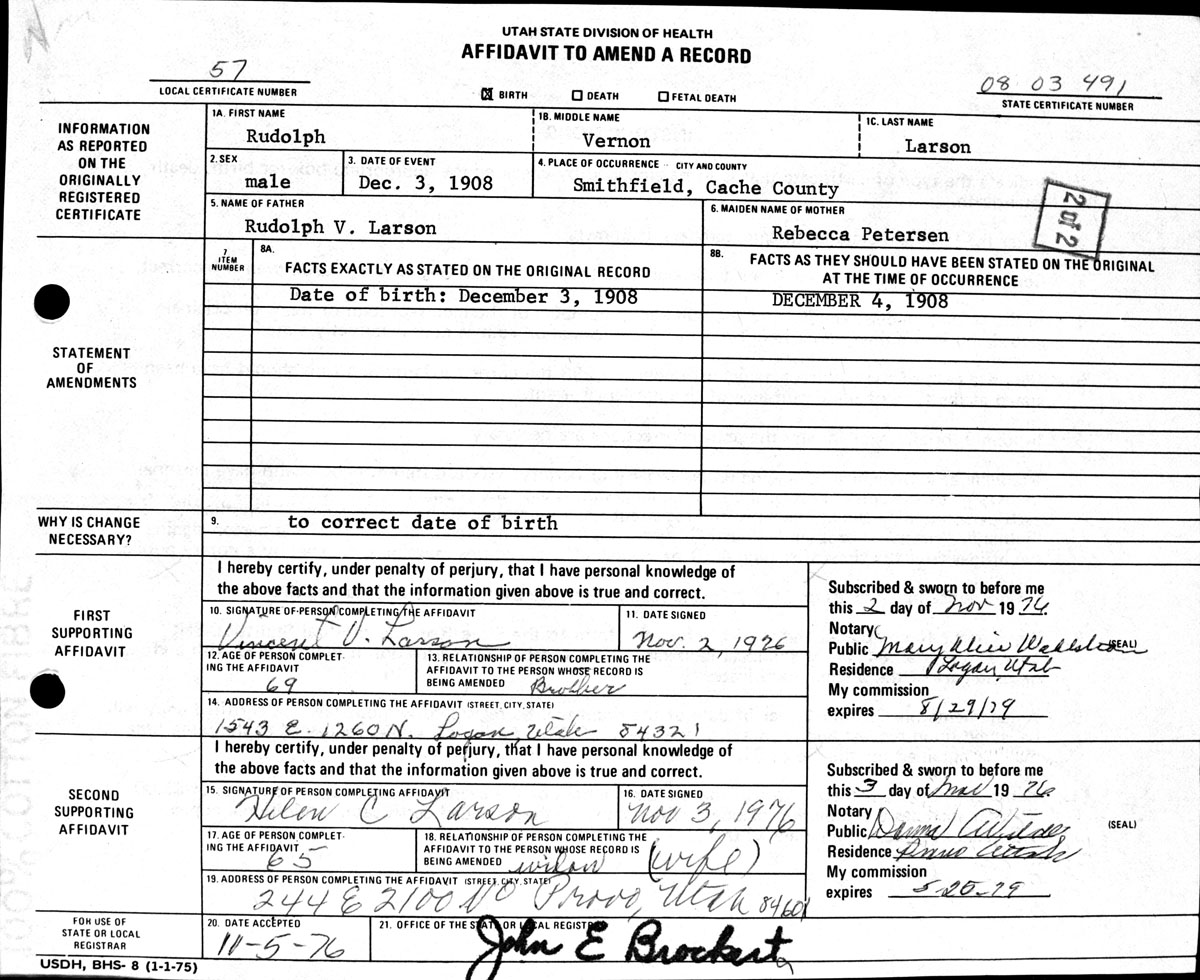 UTAH STATE DIVISION OF HEALTH
AFFIDAVIT TO AMEND A RECORD
57
LOCAL CERTIFICATE NUMBER
☒ BIRTH ☐ DEATH ☐ FETAL DEATH
08 03 491
STATE CERTIFICATE NUMBER
INFORMATION
AS REPORTED
ON THE
ORIGINALLY
REGISTERED
CERTIFICATE
1A. FIRST NAME
Rudolph
1B. MIDDLE NAME
Vernon
1C. LAST NAME
Larson
2. SEX
male
3. DATE OF EVENT
Dec. 3, 1908
4. PLACE OF OCCURRENCE - CITY AND COUNTY
Smithfield, Cache County
5. NAME OF FATHER
Rudolph V. Larson
6. MAIDEN NAME OF MOTHER
Rebecca Petersen
2 of 2
STATEMENT
OF
AMENDMENTS
7
ITEM
NUMBER
8A.
FACTS EXACTLY AS STATED ON THE ORIGINAL RECORD
8B.
FACTS AS THEY SHOULD HAVE BEEN STATED ON THE ORIGINAL
AT THE TIME OF OCCURRENCE
Date of birth: December 3, 1908
DECEMBER 4, 1908
WHY IS CHANGE
NECESSARY?
9.
to correct date of birth
FIRST
SUPPORTING
AFFIDAVIT
I hereby certify, under penalty of perjury, that I have personal knowledge of
the above facts and that the information given above is true and correct.
10. SIGNATURE OF PERSON COMPLETING THE AFFIDAVIT
Vincent V. Larson
11. DATE SIGNED
Nov. 2, 1976
12. AGE OF PERSON COMPLET-
ING THE AFFIDAVIT
69
13. RELATIONSHIP OF PERSON COMPLETING THE
AFFIDAVIT TO THE PERSON WHOSE RECORD IS
BEING AMENDED Brother
14. ADDRESS OF PERSON COMPLETING THE AFFIDAVIT (STREET, CITY, STATE)
1543 E. 1260 N. Logan, Utah 84321
Subscribed & sworn to before me
this 2 day of Nov 19 76
Notary
Public Mary Alice (SEAL)
Residence Logan, Utah
My commission
expires 8/29/79
SECOND
SUPPORTING
AFFIDAVIT
I hereby certify, under penalty of perjury, that I have personal knowledge of
the above facts and that the information given above is true and correct.
15. SIGNATURE OF PERSON COMPLETING AFFIDAVIT
Helen C Larson
16. DATE SIGNED
Nov 3, 1976
17. AGE OF PERSON COMPLET-
ING THE AFFIDAVIT
65
18. RELATIONSHIP OF PERSON COMPLETING THE
AFFIDAVIT TO THE PERSON WHOSE RECORD IS
BEING AMENDED widow (wife)
19. ADDRESS OF PERSON COMPLETING THE AFFIDAVIT (STREET, CITY, STATE)
244 E 2100 No Provo, Utah 84601
Subscribed & sworn to before me
this 3 day of 19 76
Notary
Public Donna (SEAL)
Residence Provo Utah
My commission
expires 5-25-79
FOR USE OF
STATE OR LOCAL
REGISTRAR
20. DATE ACCEPTED
11-5-76
21. OFFICE OF THE STATE OR LOCAL REGISTRAR
John E Brockert
USDH, BHS- 8 (1-1-75)